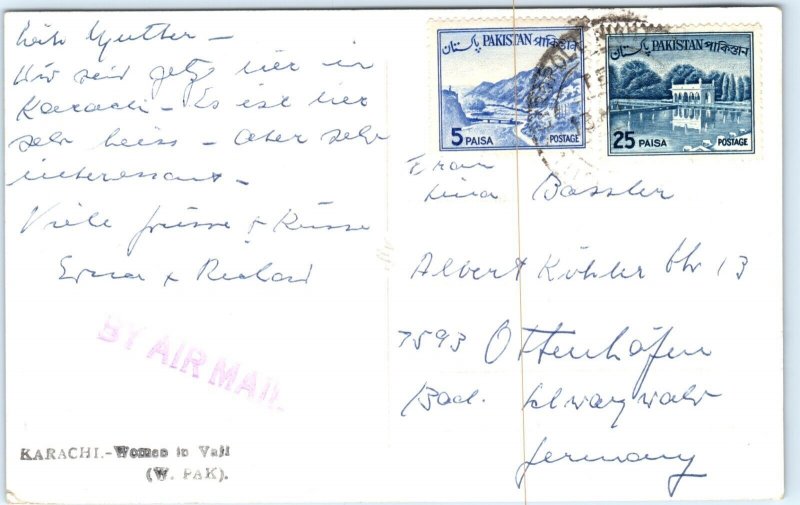 Mutter –
Wir sind jetzt hier in
Karachi – Es ist hier
sehr heiss – Aber sehr
interessant –
Viele Grüsse + Küsse
Erna + Richard
BY AIR MAIL
KARACHI.-Women in Vail
(W. PAK).
پاکستان PAKISTAN পাকিস্তান
5 PAISA POSTAGE
پاکستان PAKISTAN পাকিস্তান
25 PAISA POSTAGE
Frau
Lina Bassler
Albert Köhler Str 13
7593 Ottenhöfen
Bad. Schwarzwald
Germany